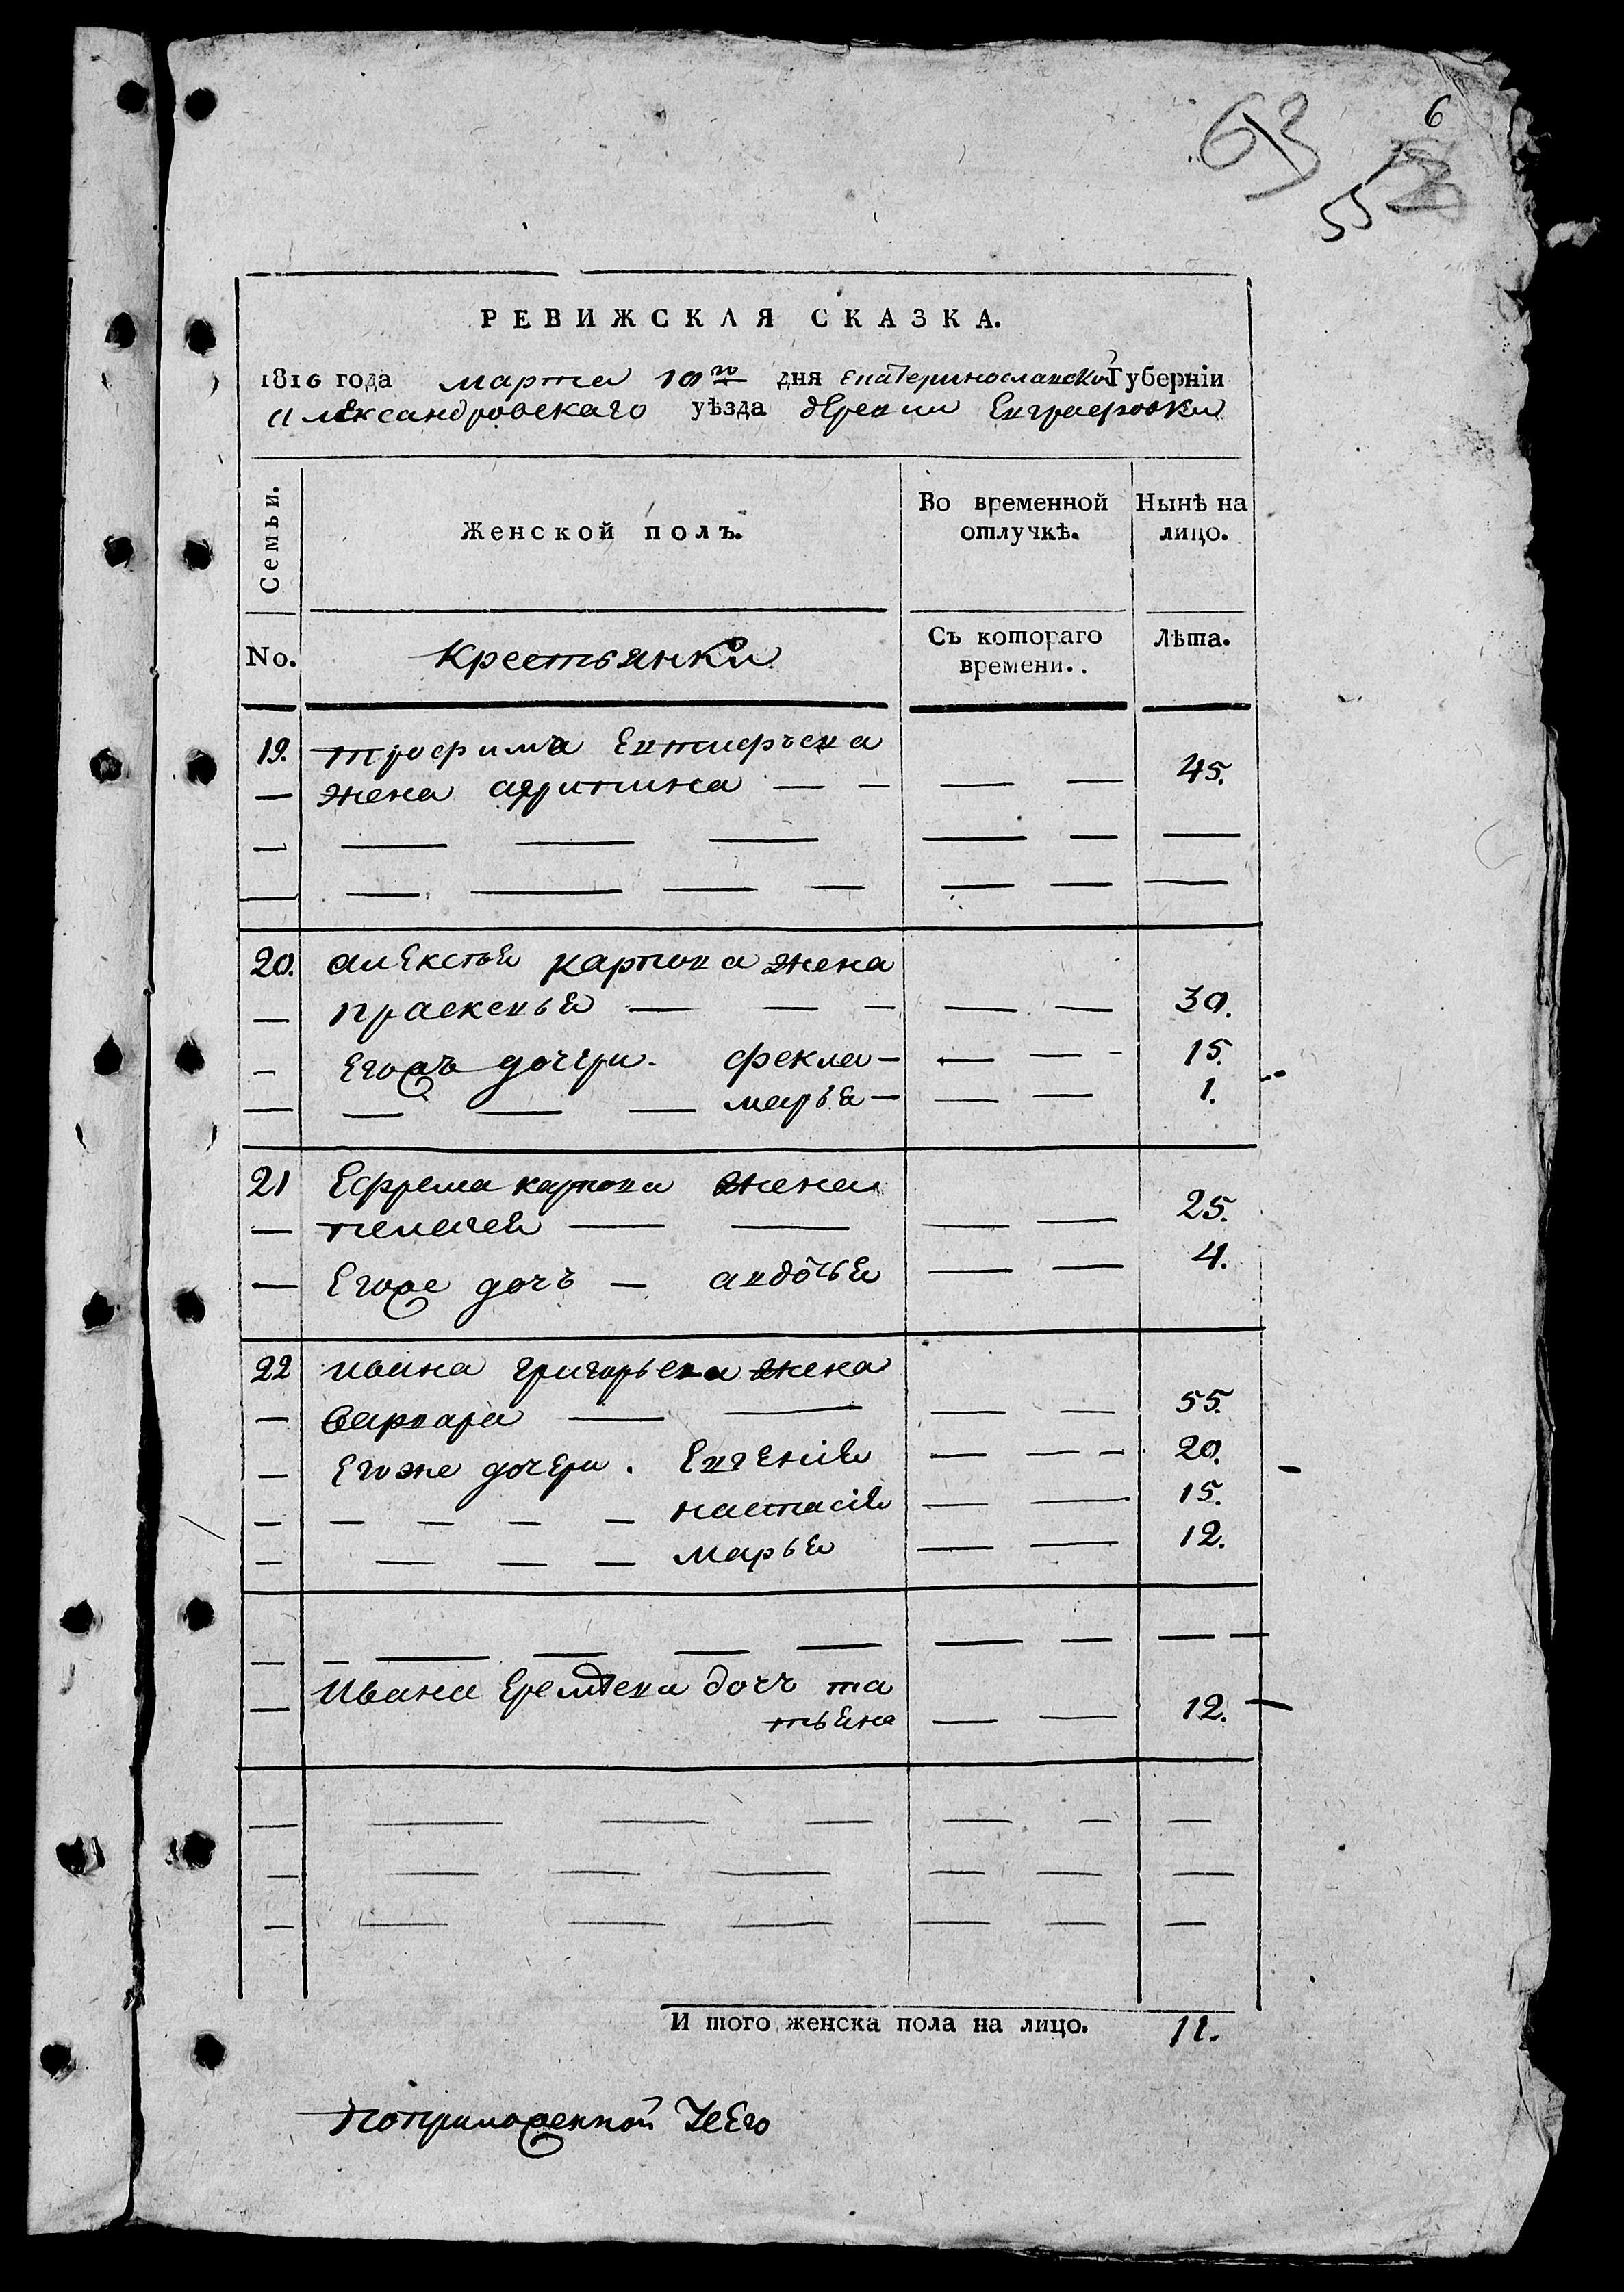 6
63
55
РЕВИЖСКАЯ СКАЗКА.
1816 года марта 10го дня Екатеринославской Губерніи
Александровскаго уѣзда деревни Евграфовки
Семьи.
Женской полъ.
Во временной отлучкѣ.
Нынѣ на лицо.
No.
Крестьянки
Съ котораго времени.
Лѣта.
19. Трофима Евтифѣева
жена 45.
20. Алексѣя Карпова жена
Прасковья 30.
Егожъ дочери. Фекла 15.
Марья 1.
21 Ефрема Карпова жена
Пелагея 25.
Егоже дочь Авдотья 4.
22 Ивана Григорьева жена
Варвара 55.
Егоже дочери. Евгенія 20.
Настасія 15.
Марья 12.
Ивана Еремѣева дочь Та
тьяна 12.
И того женска пола на лицо. 11.